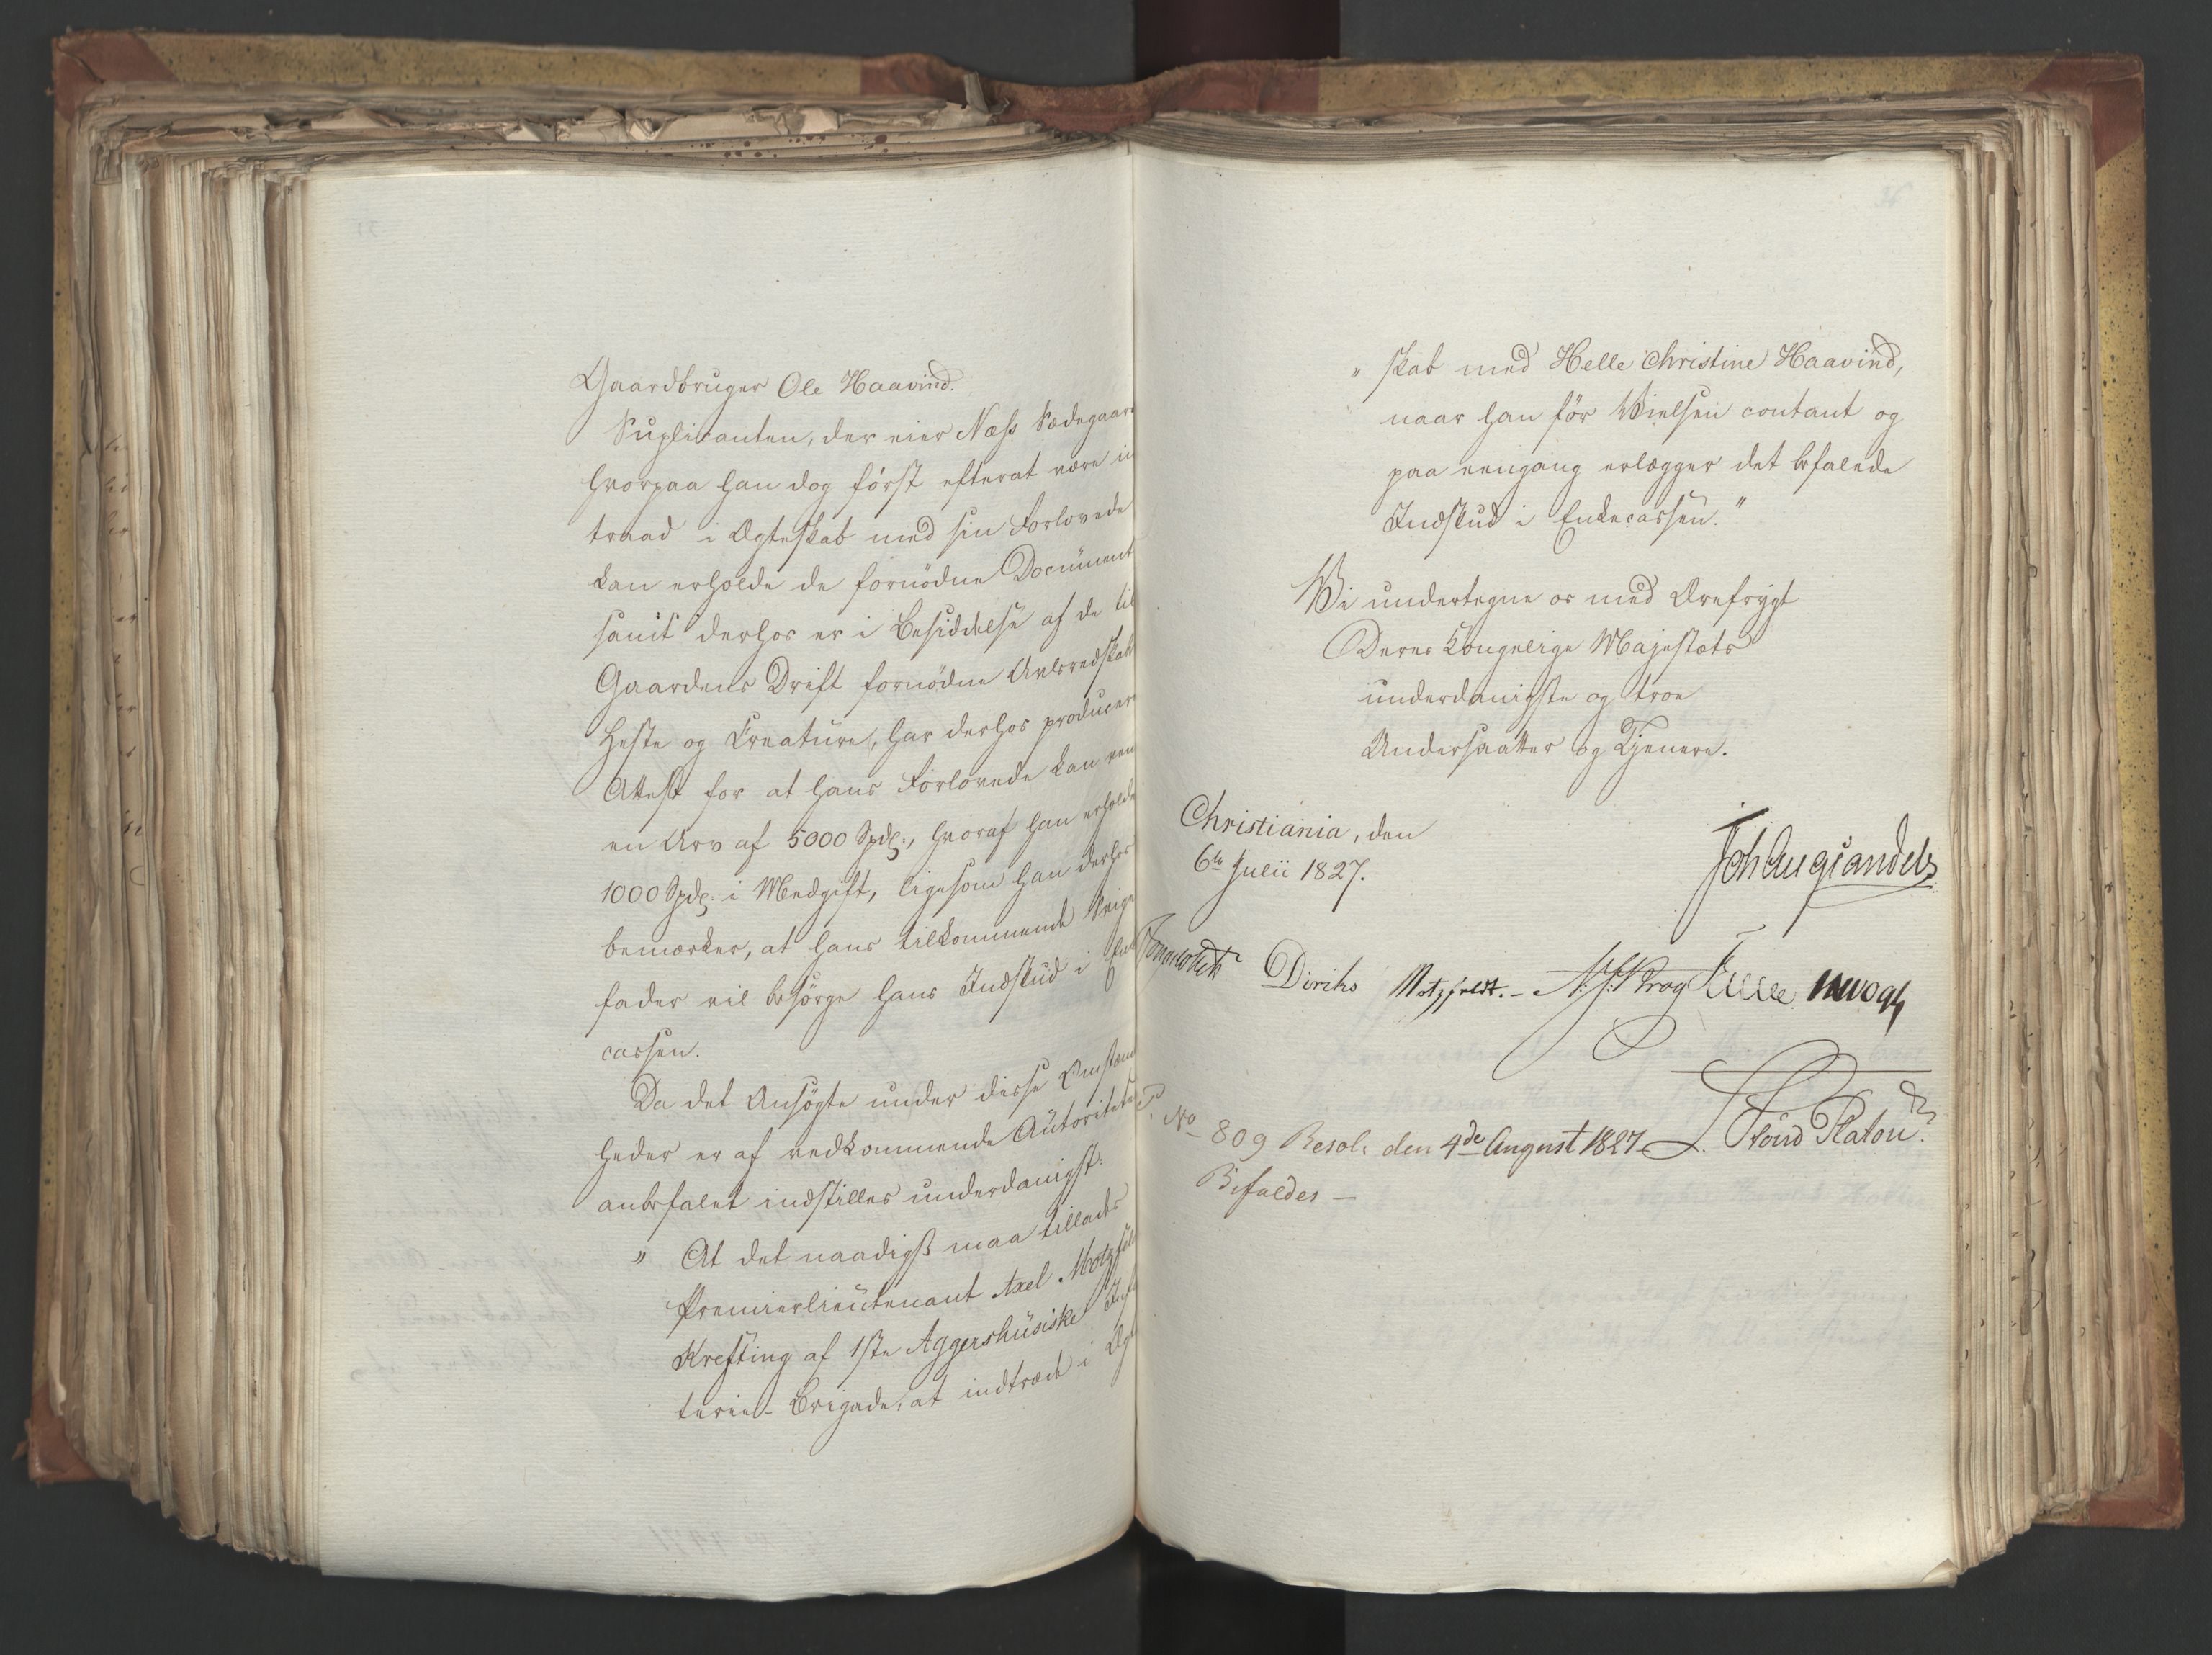 Gaardbruger Ole Haavind.
Suplicanten, der eier Næss Sædegaar
hvorpaa han dog först efterat være in
traad i Ægteskab med sin Forlovede
kan erholde de fornödne Document
samt derhos er i Besiddelse af de til
Gaardens Drift fornödne Avlsredskab
Heste og Creature, har derhos producere
Attest for at hans Forlovede kan ven
en Arv af 5000 Spdl:, hvoraf han erholde
1000 Spdl. i Medgift, ligesom han derhos
bemærker, at hans tilkommende Sviger
fader vil besörge hans Indskud i Enke
cassen.
Da det Ansögte under disse Omstænd
heder er af vedkommende Autoriteter
anbefalet indstilles underdanigst:
" At det naadigst maa tillades
Premierlieutenant Axel Motzfeld
Krefting af 1ste Aggershusiske Infa
terie-Brigade, at indtræde i Ægte
" skab med Helle Christine Haavind,
naar han för Vielsen contant og
paa eengang erlægger det befalede
Indskud i Enkecassen."
Vi undertegne os med Ærefrygt
Deres Kongelige Majestæts
underdanigste og troe
Undersaatter og Tjenere.
Christiania, den
6te Julii 1827.
Joh Aug Sandels
Sommerhielm Diriks Motzfeldt.- J. H. Krog Treschow
L. Stoud Platou
No 809 Resol: den 4de August 1827
Bifaldes -